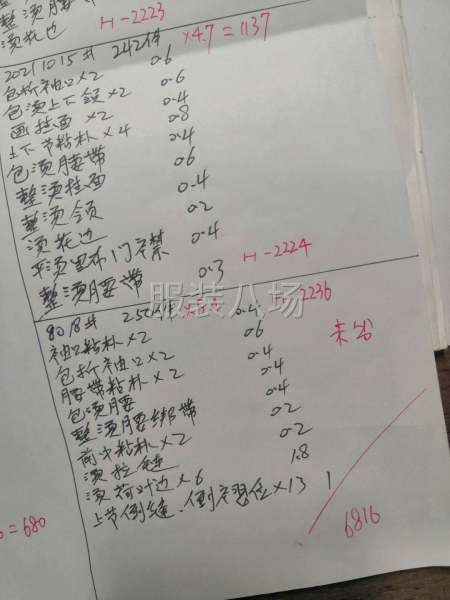 整烫腰
烫花边 H-2223
20211015# 242件 ×4.7=1137
包折袖口×2 0.6
包烫上下领×2 0.6
画挂面×2 0.4
上下节粘朴×4 0.8
包烫腰带 0.4
整烫挂面 0.6
整烫领 0.4
烫花边 0.2
平烫里布门襟 0.4
整烫腰带 0.3 H-2224
8018# 250件 H-2236
袖口粘朴×2 0.4
包折袖口×2 0.6
腰带粘朴×2 0.4
包烫腰 0.4
整烫腰绑带 0.4
前中粘朴×2 0.2
烫拉链 0.2
烫荷叶边×6 1.8
上节倒缝.倒省位×13 1
=680
6816
服装八场